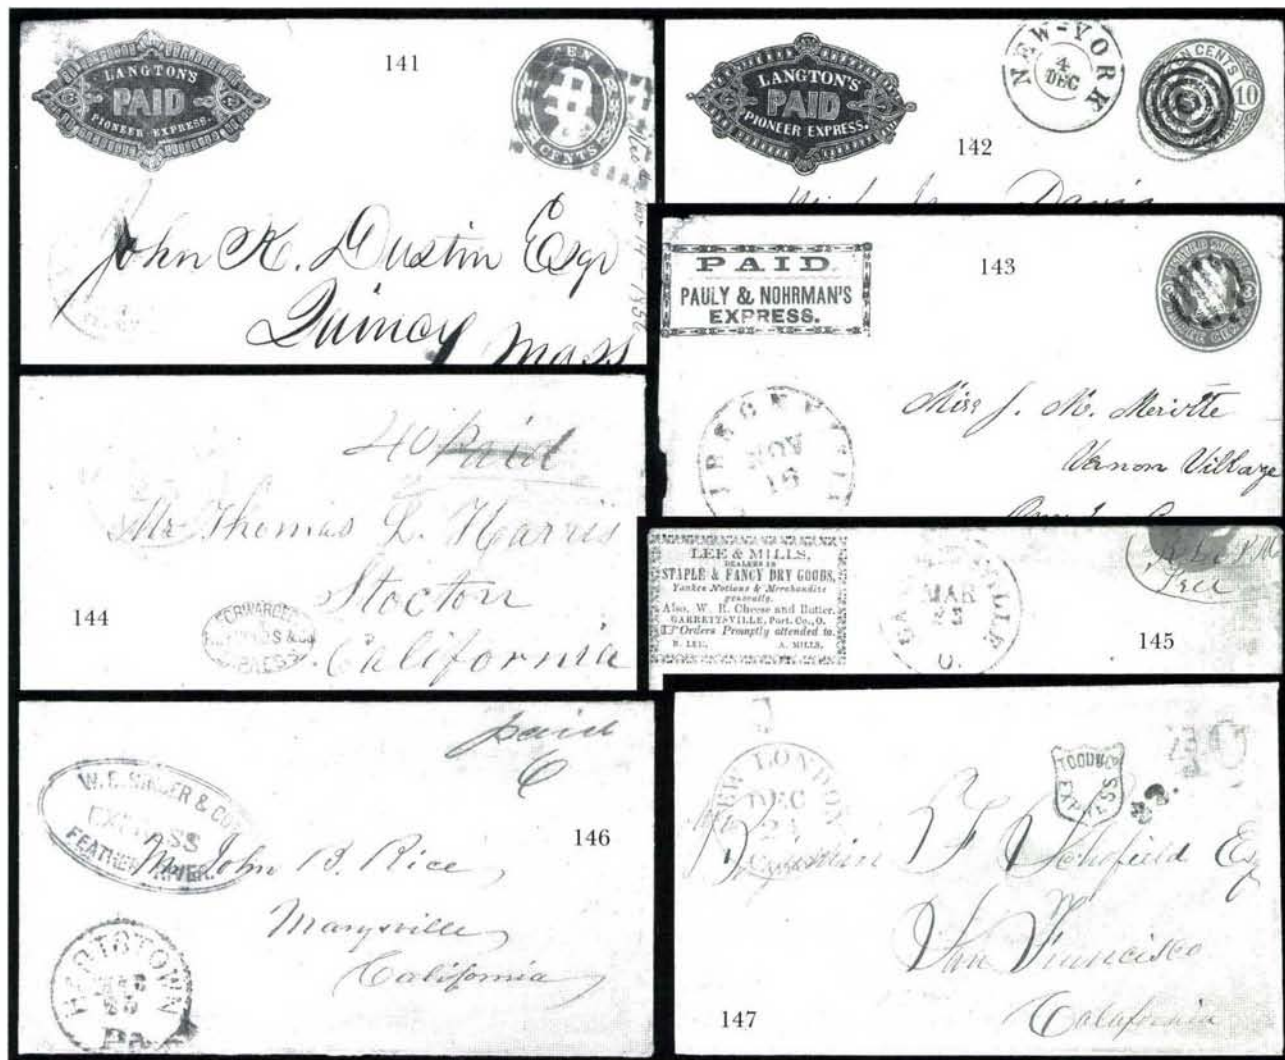 LANGTON'S
PAID
PIONEER EXPRESS.
141
TEN
CENTS
John K. Dustin Esqr
Quincy Mass
LANGTON'S
PAID
PIONEER EXPRESS.
NEW-YORK
4
DEC
TEN CENTS
10
142
Davis
PAID
PAULY & NOHRMAN'S
EXPRESS.
143
NOV
16
Miss J. M.
Vernon Village
40 Paid
Mr Thomas L. Harris
Stocton
California
144
EXPRESS
LEE & MILLS,
DEALERS IN
STAPLE & FANCY DRY GOODS,
Yankee Notions & Merchandize
generally.
Also, W. R. Cheese and Butter.
GARRETTSVILLE, Port. Co., O.
Orders Promptly attended to.
R. LEE, A. MILLS.
MAR
O.
Free
145
paid
6
& CO'S
EXPRESS
FEATHER RIVER.
146
Mr John B. Rice
Marysville
California
Pa
NEW LONDON
DEC
24
TODD & CO
EXPRESS
40
Benjamin F Schofield Esq
San Francisco
California
147